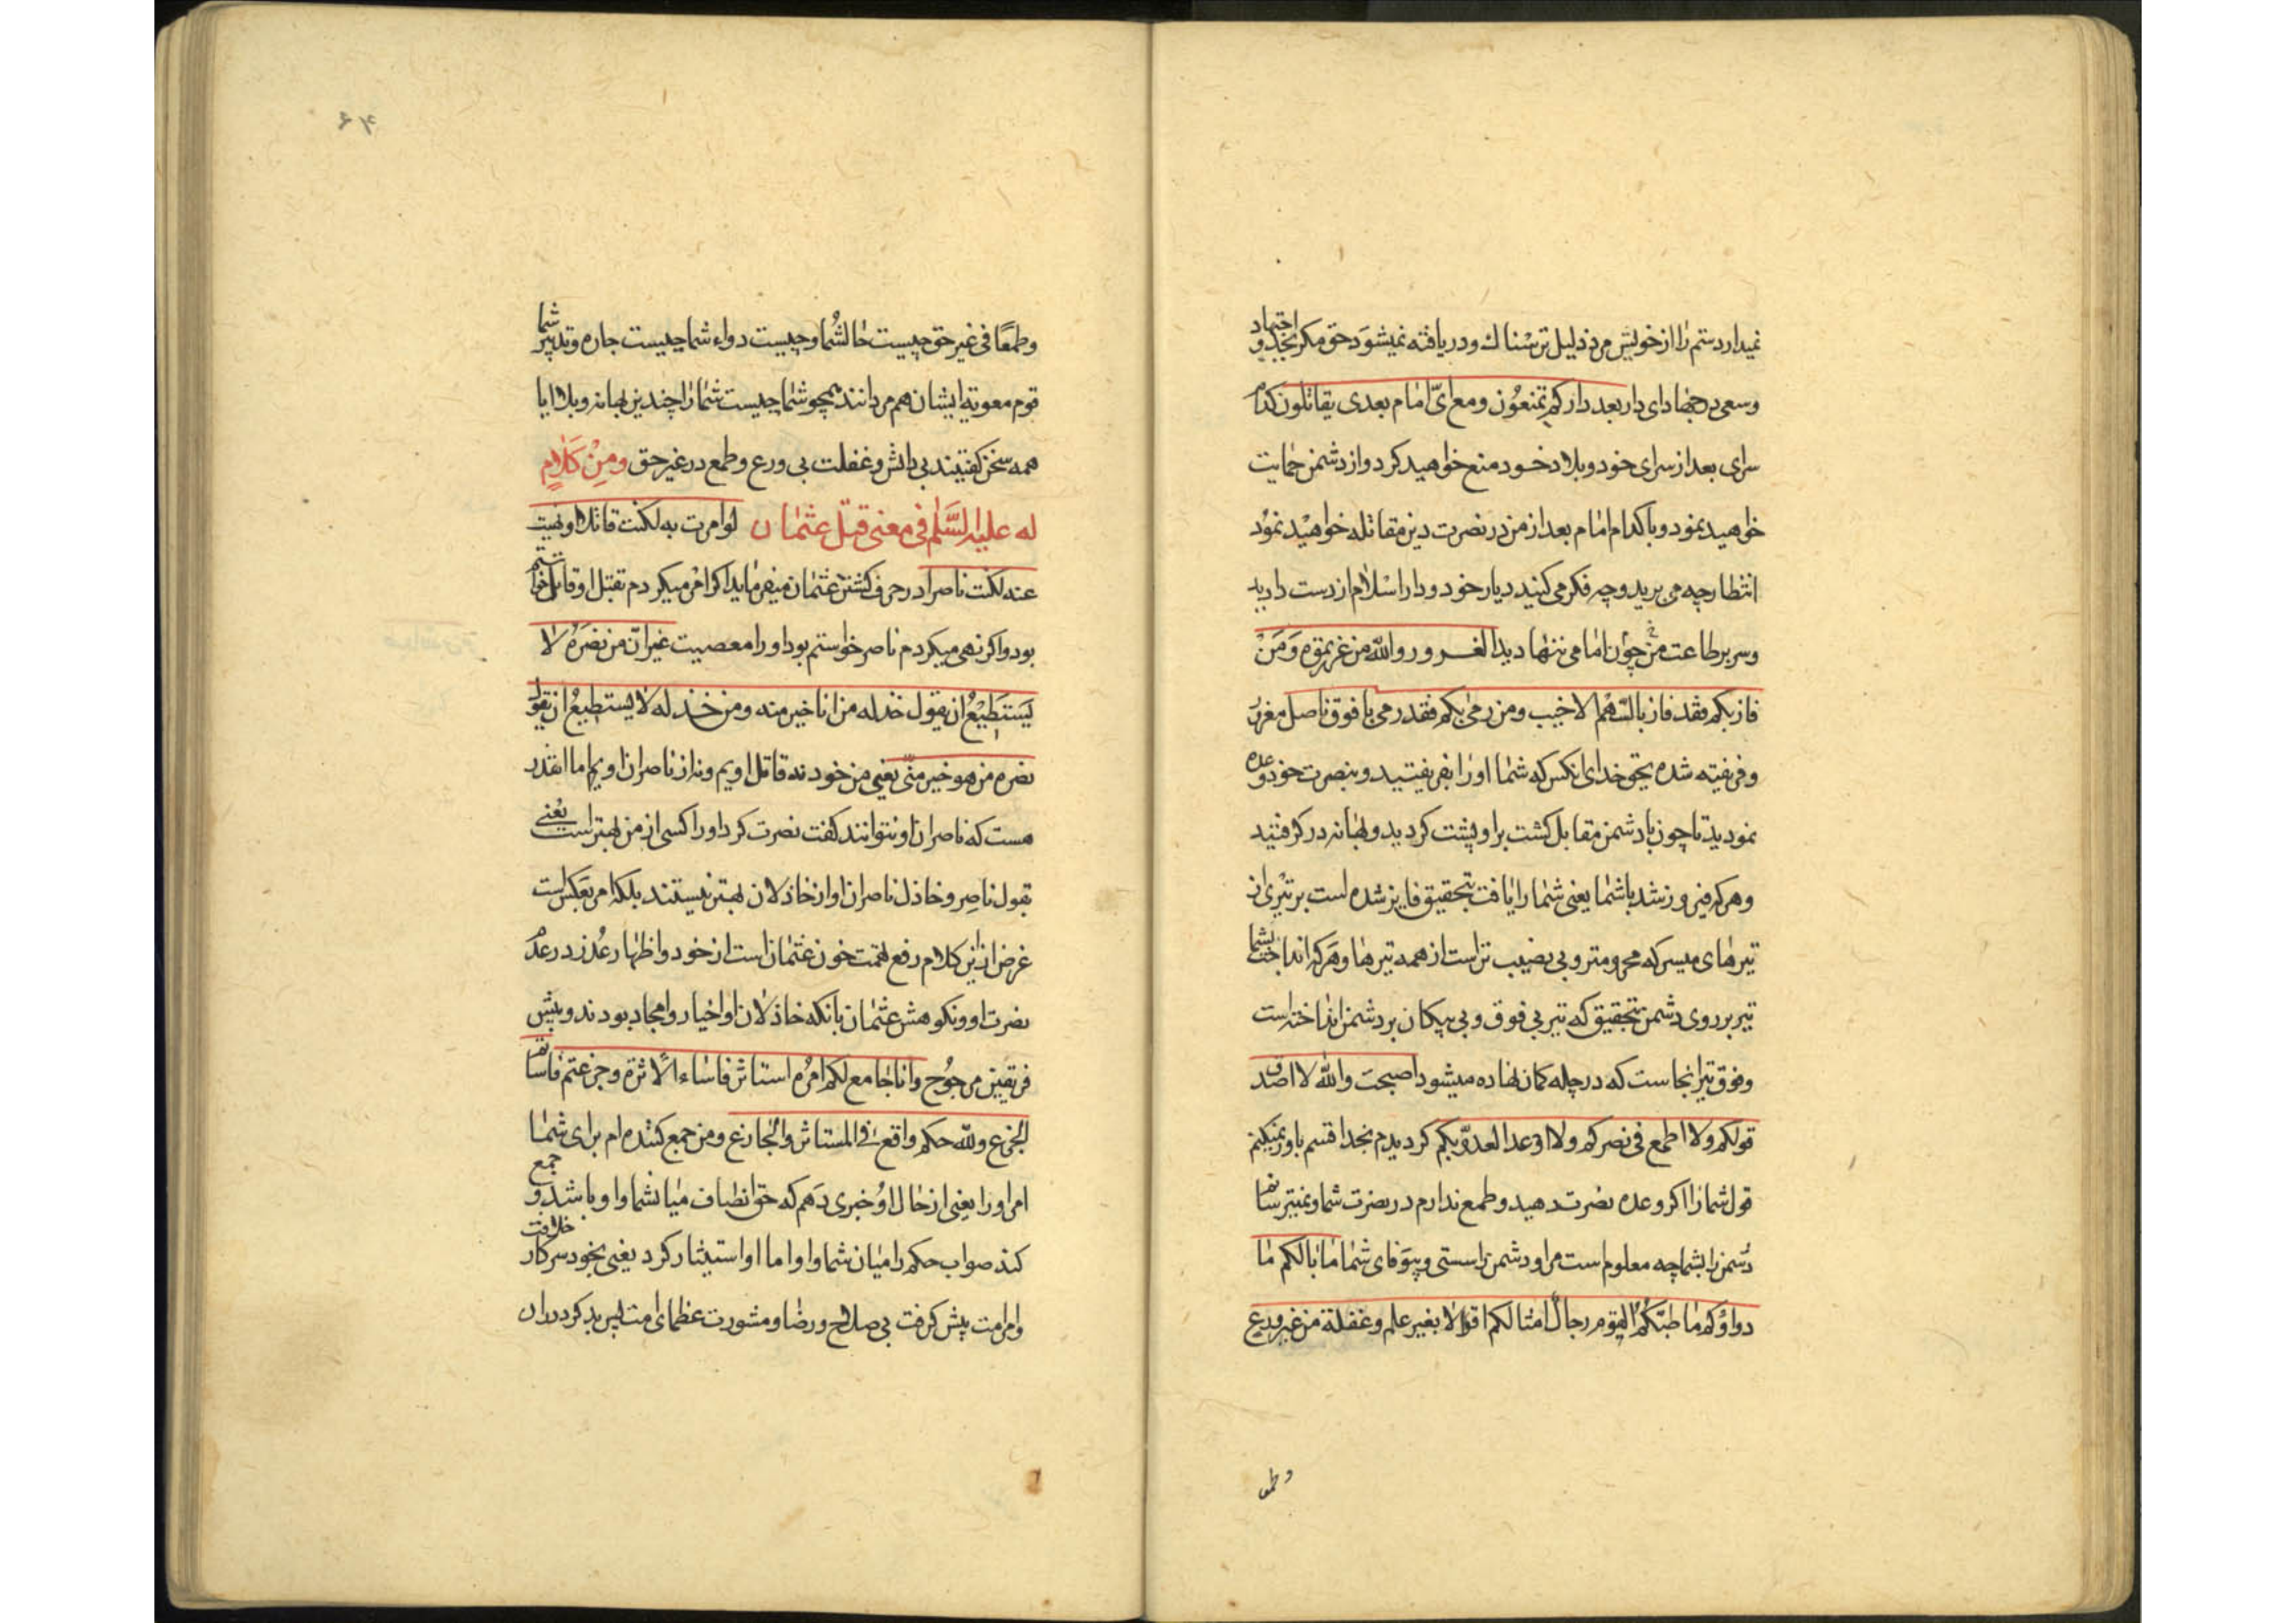 نمیدارد ستم را از خویش مرد ذلیل ترسناك و دریافته نمیشود حق مکر بجد و اجتهاد
وسعی در جهاد ای دار بعد دارکم تمنعون ومع ایّ امام بعدی یقاتلون کدام
سرای بعد از سرای خود و بلاد خود منع خواهید کرد و از دشمن حمایت
خواهید نمود و با کدام امام بعد از من در نصرت دین مقاتله خواهید نمود
انتظار چه می برید و چه فکر می کنید دیار خود و دار اسلام از دست دادید
وسر بر طاعت من چون امامی ننهادید المغرور والله من غررتموه ومن
فاز بکم فقد فاز بالسهم الاخیب ومن رمی بکم فقد رمی بافوق ناصل مغرور
وفریفته شده بحق خدای انکس که شما او را بفریفتید و بنصرت خود وعده
نمودید تا چون با دشمن مقابل کشت برا و پشت کردید و بهانه در کرفتید
و هر که فیروز شد باشما یعنی شما را یافت بتحقیق فایز شده است بر تیری از
تیرهای میسر که محرومتر و بی نصیب تر است از همه تیرها و هر که انداخت بشما
تیر بر روی دشمن بتحقیق که تیر بی فوق و بی پیکان بر دشمن انداخته است
وفوق تیر انجاست که در چله کمان نهاده میشود اصبحت والله لا اصدق
قولکم ولا اطمع فی نصرکم ولا اوعد العدوّ بکم کردیدم بخدا قسم باور نمیکنم
قول شما را اکر وعده نصرت دهید و طمع ندارم در نصرت شما و نمیترسانم
دشمن را بشما چه معلوم است مرا و دشمن را سستی و بیوفای شما ما بالکم ما
دواؤکم ما طبّکم القوم رجال امثالکم اقوالا بغیر علم وغفلة من غیر ورع
وطمعا
۴۶
وطمعًا فی غیر حق چیست حال شما و چیست دواء شما چیست چاره و تدبیر شما
قوم معویه ایشان هم مردانند همچو شما چیست شما را چندین بهانه و بلا ایا
همه سخن کفتیند بی دانش و غفلت بی ورع و طمع در غیر حق ومن کلامٍ
له علیه السّلم فی معنی قتل عثمان لو امرت به لکنت قاتلا او نهیت
عنه لکنت ناصرا در حرف کشتن عثمان میفرماید اکر امر میکردم بقتل او قاتل خواستم
بود و اکر نهی میکردم ناصر خواستم بود او را معصیت غیر انّ من نصره لا
یستطیع ان یقول خذله من انا خیر منه ومن خذله لا یستطیع ان یقول
نصره من هو خیر منّی یعنی من خود نه قاتل اویم و نه از ناصران اویم اما انقدر
هست که ناصران او نتوانند کفت نصرت کرد او را کسی از من بهتر است یعنی
بقول ناصر و خاذل ناصران او از خاذلان بهتر نیستند بلکه امر بعکس است
غرض از این کلام رفع تهمت خون عثمان است از خود و اظهار عذر در عدم
نصرت او و نکوهش عثمان بانکه خاذلان او اخیار و امجاد بودند و پیش
فریقین مرجوح وانا جامع لکم امره استاثر فاساء الاثرة وجزعتم فاساتم
الجزع ولله حکم واقع فی المستاثر والجازع ومن جمع کننده ام برای شما
امر او را یعنی از حال او خبری دهم که حق انطباف میان شما و او باشد و جمع
کند صواب حکم را میان شما و او اما او استیثار کرد یعنی بخود سر کار خلافت
وامر امت پیش کرفت بی صلاح و رضا و مشورت عظمای امت پس بد کرد در ان